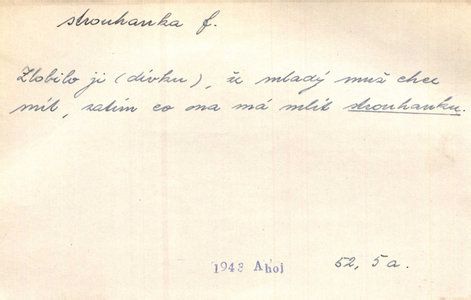 strouhanka f.
Zlobilo ji (dívku), že mladý muž chce
mít, zatím co ona má mlít strouhanku.
1943 Ahoj 52, 5a.